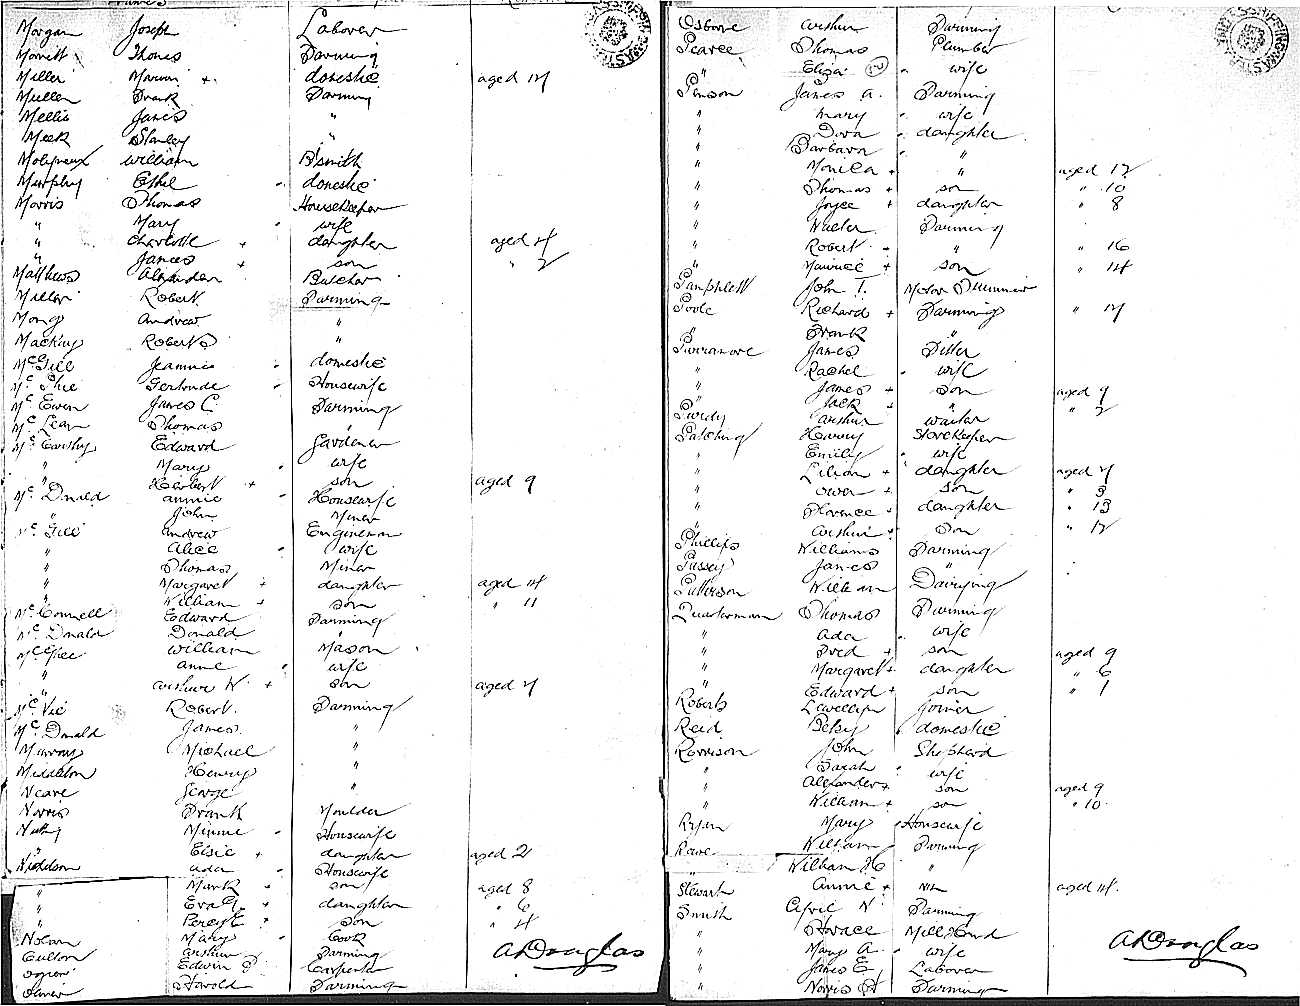 Morgan Joseph Laborer
Thomas Farming
Miller + domestic aged 14
Mullen Frank Farming
Mellis James "
Meek Stanley "
Molyneux William B'smith
Murphy Ethel domestic
Morris Thomas Housekeeper
" Mary wife
" Charlotte + daughter aged 4
" James + son " 2
Matthews Alexander Butcher
Miller Robert Farming
Mong Andrew "
Mackay Robert "
McGill Jeannie domestic
McPhie Gertrude Housewife
McEwen James C. Farming
McLean Thomas "
McCarthy Edward Gardener
" Mary wife
" Herbert + son aged 9
McDonald Annie Housewife
" John Miner
McGill Andrew Engineman
" Alice wife
" Thomas Miner
" Margaret + daughter aged 14
" William + son " 11
McConnell Edward Farming
McDonald Donald "
McGhee William Mason
" Anne wife
" Arthur W. + son aged 4
McVie Robert Farming
McDonald James "
Murray Michael "
Middleton Henry "
Neave George "
Norris Frank Moulder
Minnie Housewife
" Elsie + daughter aged 2
Niddson Ada Housewife
" Mark + son aged 8
" Eva G. + daughter " 6
" Percy E. + son " 4
Nolan Mary Cook
Arthur Farming
Edwin P. Carpenter
Oliver Harold Farming
A Douglas
Osborne Arthur Farming
Pearce Thomas Plumber
" Eliza wife
Penson James A. Farming
" Mary wife
" Dora daughter
" Barbara "
" Monica + " aged 12
" Thomas + son " 10
" Joyce + daughter " 8
" Walter Farming
" Robert + " " 16
" Maurice + son " 14
Pamphlett John T. Motor
Poole Richard + Farming " 14
" Frank "
Parramore James Fitter
" Rachel wife
" James + son aged 9
" Jack + " " 2
Purdy Arthur waiter
Patching Harry Storekeeper
" Emily wife
" Lilian + daughter aged 4
" Owen + son " 3
" Florence + daughter " 13
" Arthur + son " 12
Phillips Williams Farming
Pussey James "
Patterson William Dairying
Quarterman Thomas Farming
" Ada wife
" Fred + son aged 9
" Margaret + daughter " 6
" Edward + son " 1
Roberts Llewellyn Joiner
Reid Betsy domestic
Rorrison John Shepherd
" Sarah wife
" Alexander + son aged 9
" William + son " 10
Ryan Mary Housewife
Rowe William Farming
" William H "
Stewart Annie + Nil aged 14
Smith Cyril N Farming
" Horace Mill Hand
" Mary A. wife
" James E. Laborer
" Norris H Farming
A Douglas